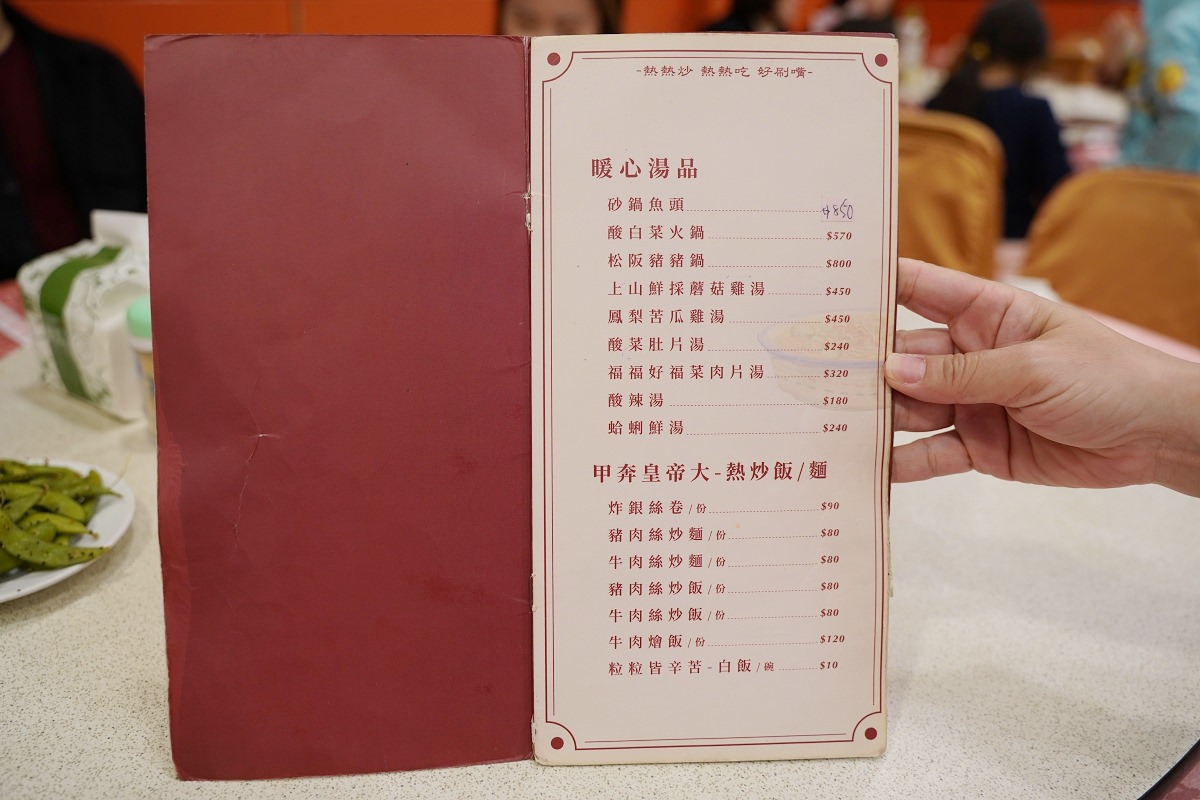 -熱熱炒 熱熱吃 好刷嘴-
暖心湯品
砂鍋魚頭 $850
酸白菜火鍋 $570
松阪豬豬鍋 $800
上山鮮採蘑菇雞湯 $450
鳳梨苦瓜雞湯 $450
酸菜肚片湯 $240
福福好福菜肉片湯 $320
酸辣湯 $180
蛤蜊鮮湯 $240
甲奔皇帝大-熱炒飯/麵
炸銀絲卷/份 $90
豬肉絲炒麵/份 $80
牛肉絲炒麵/份 $80
豬肉絲炒飯/份 $80
牛肉絲炒飯/份 $80
牛肉燴飯/份 $120
粒粒皆辛苦-白飯/碗 $10